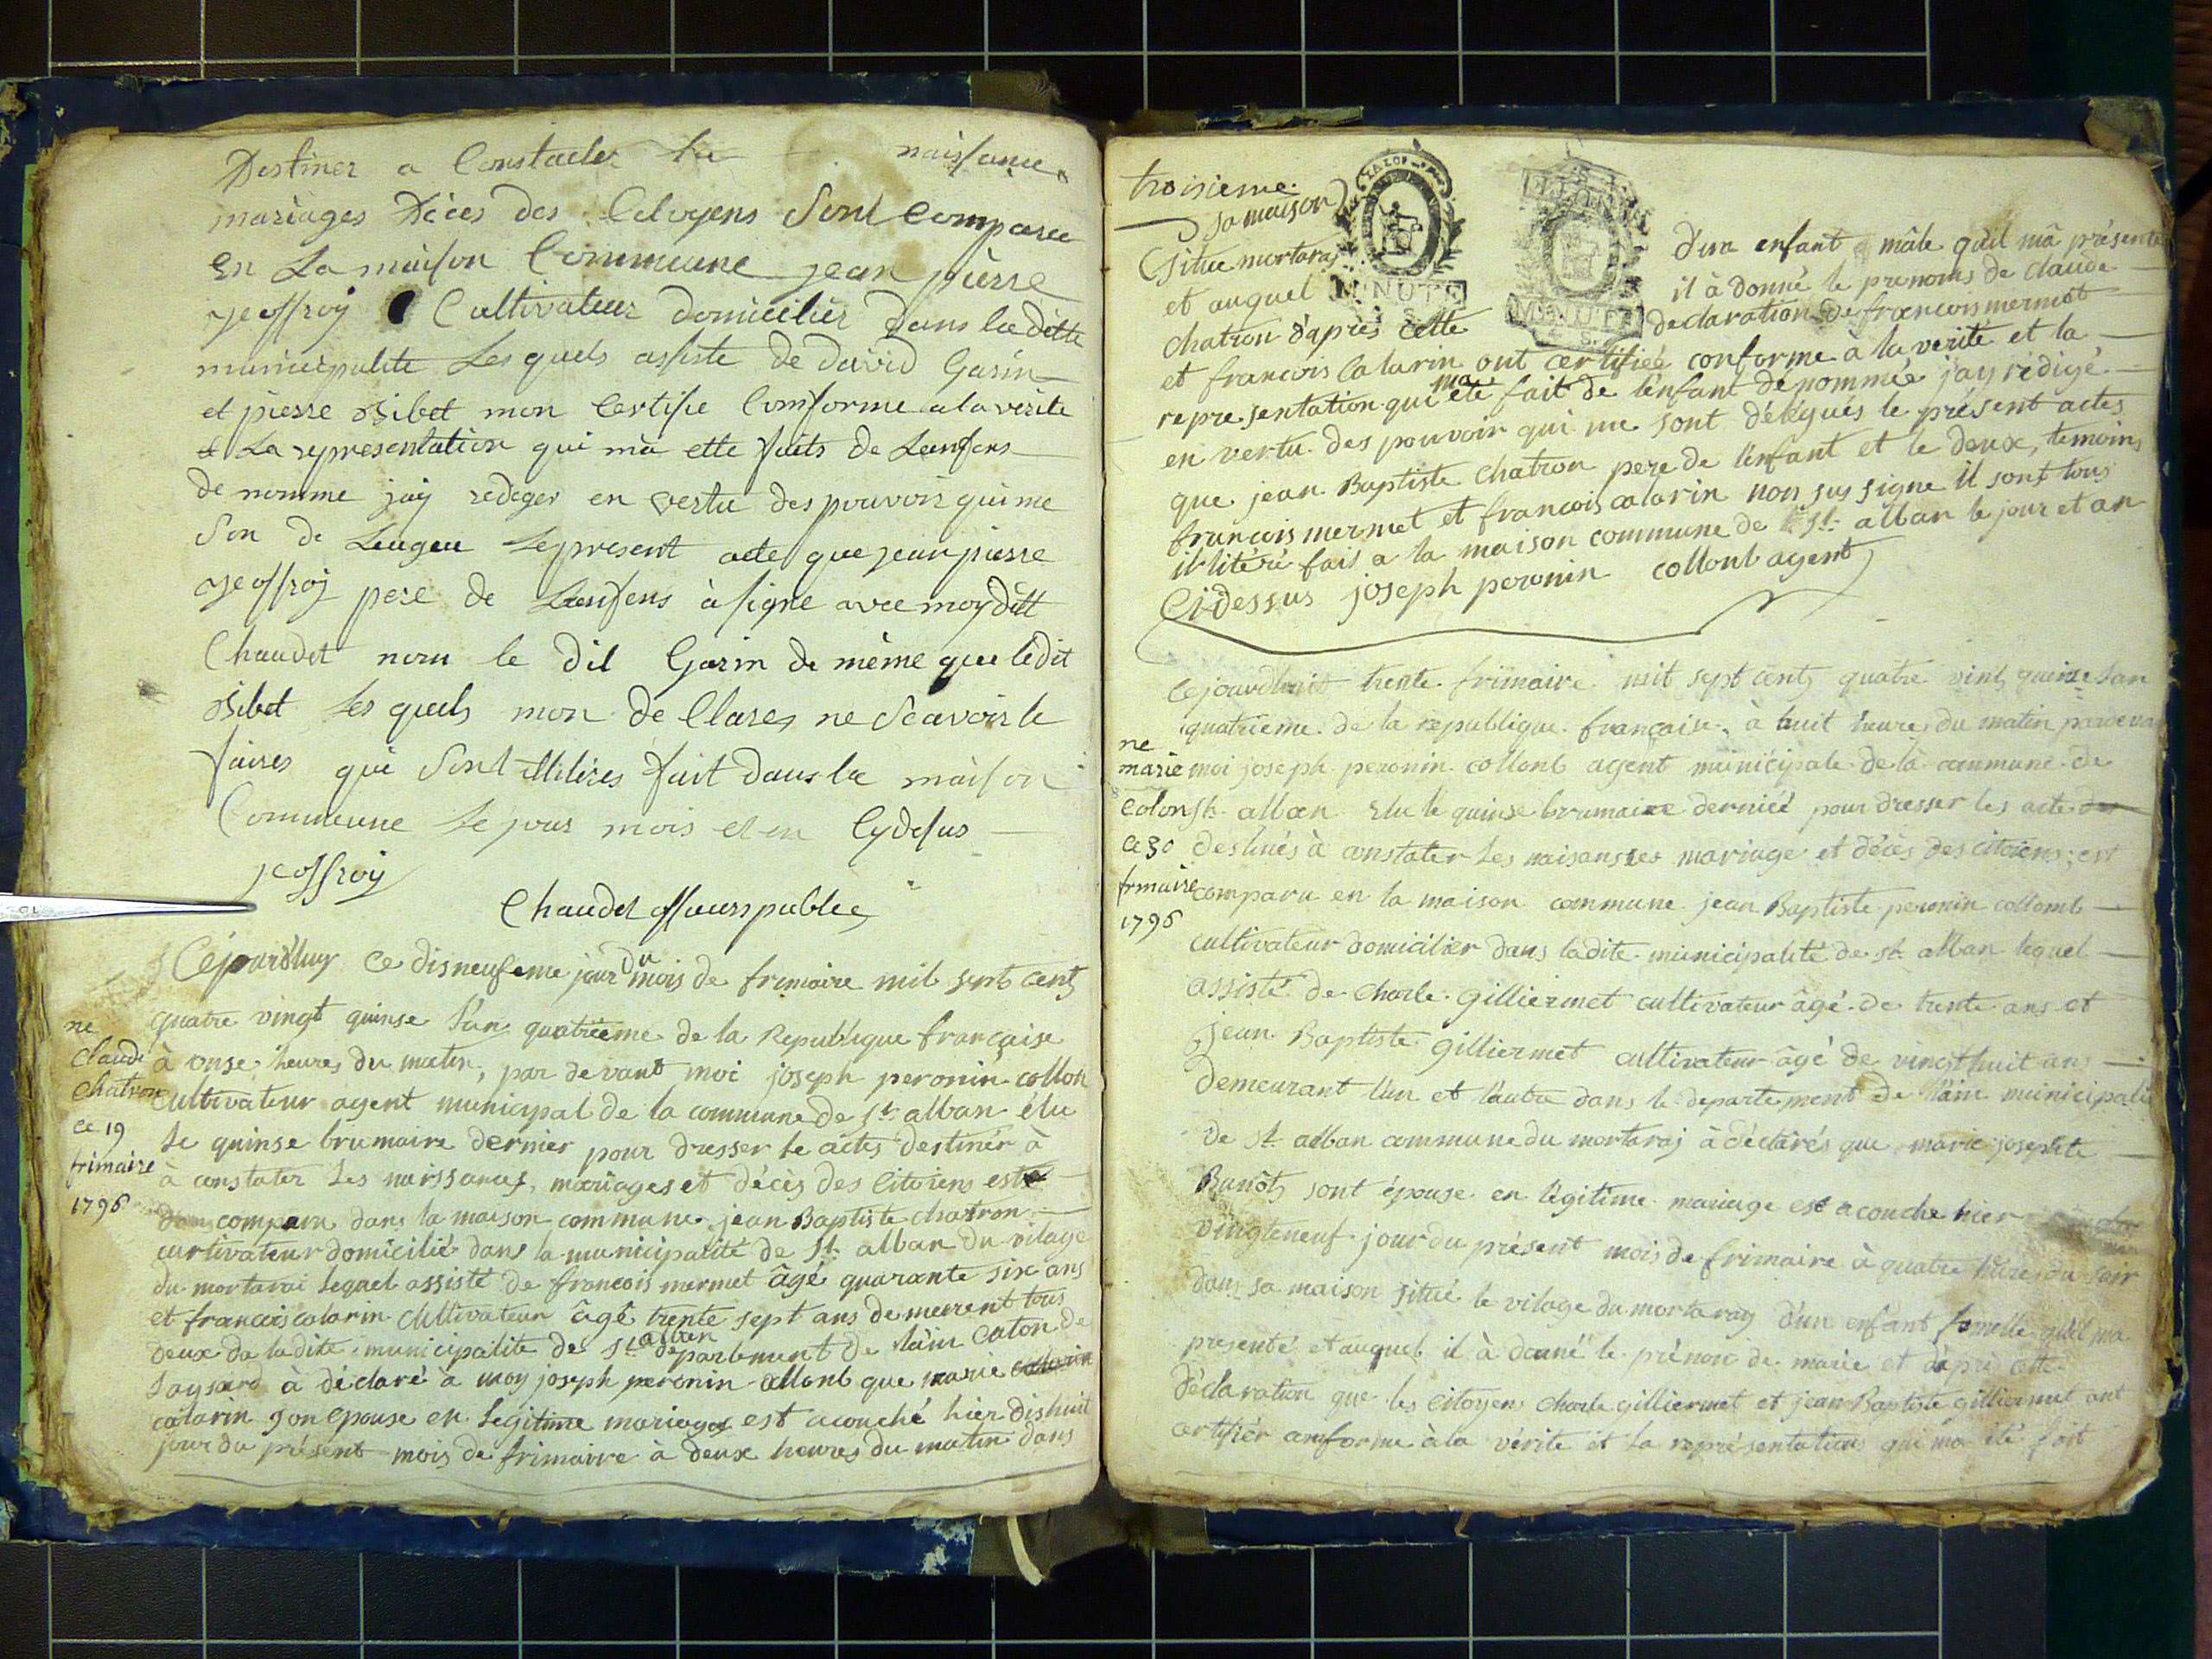 Destiner a Constacler la naissance
mariages Déces des Citoyens Sont comparu
en La maison Commeune jean pierre
jeoffroy Cultivateur domicilier dans la ditte
municipalite Lesquels assiste de david Garin
et pierre Ribet mon Certifie Comforme a la verite
& La representation qui ma ette faits de Lenfens
de nomme jaÿ rediger en vertu des pouvoir qui me
Son de Leugeu Le present acte que jean pierre
jeoffroy pere de Lenfens à signe avec moy ditt
Chaudet nom le dit Garin de même que ledit
Ribet Les quels mon de Clares ne Scavoir le
faires qui Sont illiteres fait dans la maison
Commeune Le jour mois et en Cydesus
jeoffroy
Chaudet officiers publec
Céjourdhuy ce disneufeme jour du mois de frimaire mil sept cents
quatre vingt quinse l'an quatrieeme de la Republique francaise
ne
claude
chatron
ce 19
frimaire
1796
à onse heures du matin, par devant moi joseph peronin collon
cultivateur agent municipal de la commune de st alban élu
le quinse brumaire dernier pour dresser le actes destinér à
à constater les naissances, mariages et décès des Citoiens est
comparu dans la maison commune jean Baptiste chatron
curtivateur domicilié dans la municipalité de st alban du vilage
du mortarai lequel assisté de francois mermet âgé quarante six ans
et francois calarin cultivateur âgé trente sept ans demeurent tous
deux da ladite municipalite de st alban departement de lain Caton de
à déclaré à moy joseph peronin collonb que marie calarin
calarin son epouse en legitime mariage est acouché hier dishuit
jour du présent mois de frimaire à deux heures du matin dans
troisieme
sa maison
situe mortaraj d'un enfant mâle qu'il mâ présente
et auquel il à donné le prenoms de claude
chatron d'après cette declaration de francois mermet
et francois Calarin ont certifiée conforme à la verité et la
representation qui ma ete fait de l'enfant dénommée j'ay rédigé
en vertu des pouvoir qui me sont délégués le présent actes
que jean Baptiste chatron pere de l'enfant et le deux, temoins
francois mermet et francois calarin non sus signe il sont tous
illitéré fais a la maison commune de st alban le jour et an
Cidessus joseph peronin collonb agent
Cejourdhuit trente frimaire mil sept cents quatre vint quinse lan
quatrieme de la republique francaise, à huit heure du matin
ne
marie
Colon
ce 30
frimaire
1796
moi joseph peronin collonb agent municipale de la commune de
st alban élu le quinse brumaire derniéé pour dresser les acte
destinés à constater les naisanses mariage et décès des citoiens; est
comparu en la maison commune jean Baptiste peronin collomb
cultivateur domicilier dans ladite municipalité de st alban lequel
assisté de charle gilliermet cultivateur âgé de trente ans et
jean Baptiste gilliermet cultivateur âgé de vingt huit ans
demeurant l'un et l'autre dans le departement de l'ain municipalité
de st alban commune du mortaraj à déclarés que marie josephte
sont épouse en légitime mariage est acouche hier
vingteneuf jour du présent mois de frimaire à quatre heures du soir
dans sa maison situé le vilage du mortaray d'un enfant femelle quil ma
presenté et auquel il à donné le prénom de marie et dapré cette
déclaration que les citoyens charle gilliermet et jean Baptiste gilliermet ont
certifiér conforme à la vérite et la représentation qui ma été fait